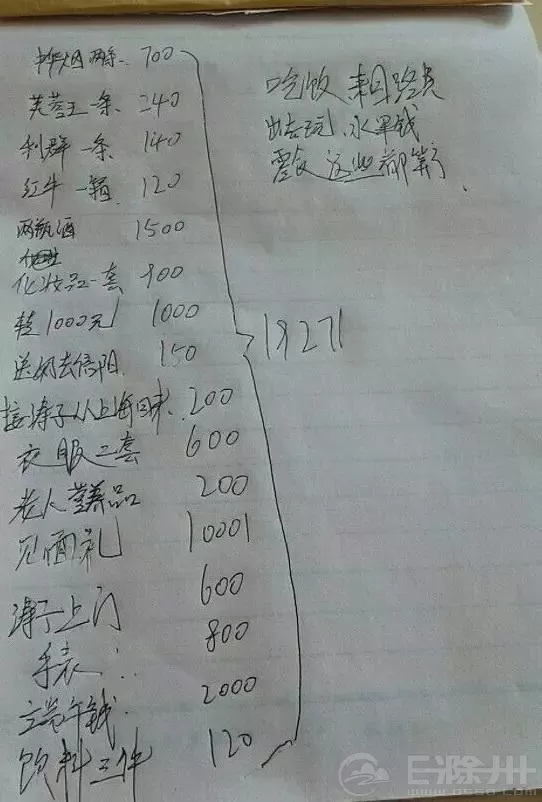 中华烟两条 700
芙蓉王一条 240
利群一条 140
红牛一箱 120
两瓶酒 1500
化妆品一套 900
转1000元 1000
送奶去信阳 150
接涛子从上海回来 200
衣服二套 600
老人营养品 200
见面礼 10001
涛子上门 600
手表 800
午钱 2000
饮料三件 120
19271
吃饭 来回路费
出去玩 水果钱
零食 这些都算了
E滁州